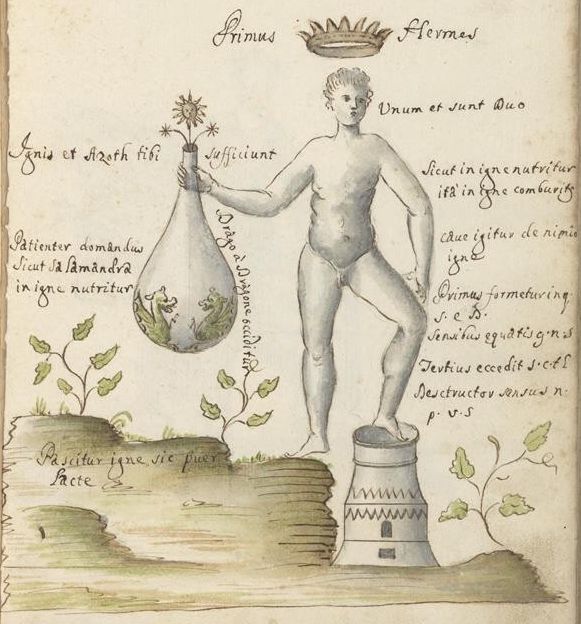 Primus Hermes
Unum et sunt Duo
Ignis et Azoth tibi sufficiunt
Sicut in igne nutritur
ità in igne comburitr
Patienter domandus
Sicut Salamandra
in igne nutritur
Drago à Dragone occiditur
caue igitur de nimio
igne
Primus formetur in q.
s. e D.
Sensibus equatis g. n. s
Tertius eccedit s. c. t E
Desctructor sensus n.
p. v. s
Pascitur igne sic puer
Lacte